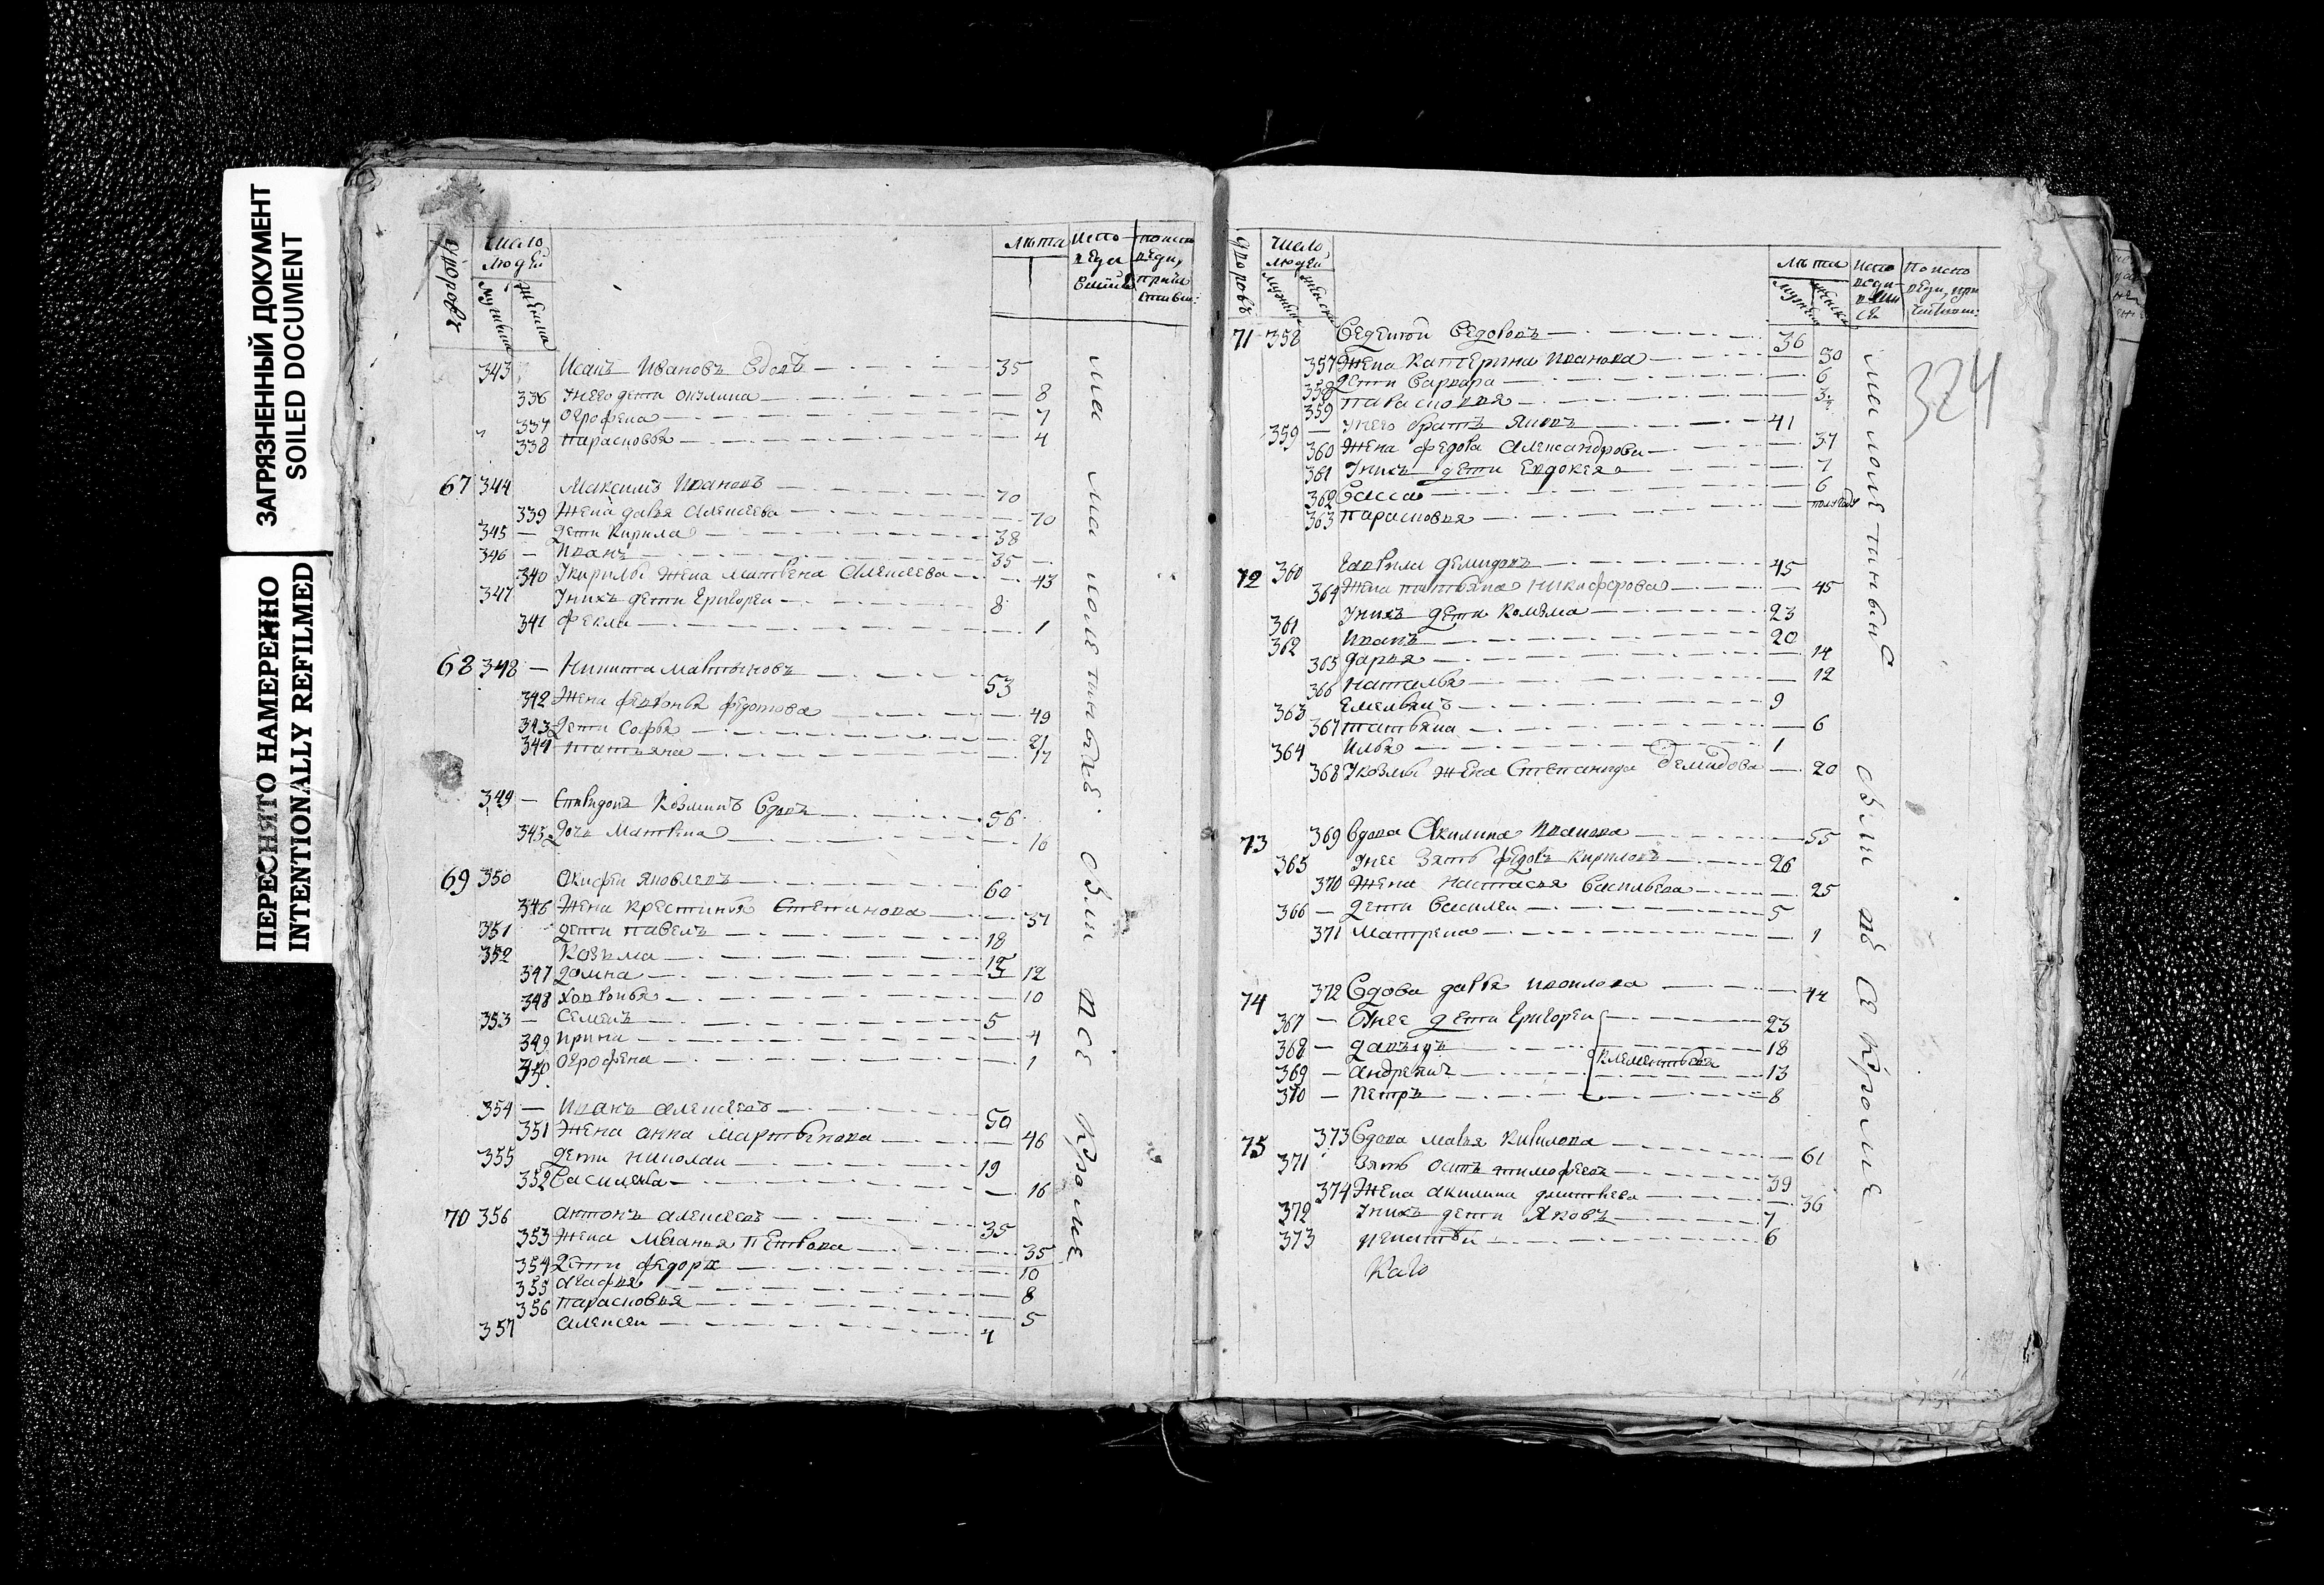 ЗАГРЯЗНЕННЫЙ ДОКУМЕНТ
SOILED DOCUMENT
ПЕРЕСНЯТО НАМЕРЕННО
INTENTIONALLY REFILMED
дворовъ
число людей
лѣта
343 Исакъ Ивановъ вдовъ 35
336 У него дети Окулина 8
337 Огрофена 7
338 Парасковья 4
67 344 Максимъ Ивановъ 70
339 Жена Дарья Алексеева 70
345 дети Кирила 38
346 Иванъ 35
340 У Кирилы жена Матвена Алексеева 43
347 У нихъ дети Григореи 8
341 Фекла 1
68 348 Никита Мартыновъ 53
342 Жена Федотова 49
343 Дети Софья 21
344 Татьяна 17
349 Козминъ вдовъ 56
343 Дочь Матвена 16
69 350 Яковлевъ 60
346 Жена Крестинья Степанова 37
351 дети Павелъ 18
352 Козьма
347 Домна 12
348 Ховронья 10
353 Семенъ 5
349 Ирина 4
350 Огрофена 1
354 Иванъ Алексеевъ 50
351 Жена Анна Мартынова 46
355 Дети Николаи 19
352 Василиса 16
70 356 Антонъ Алексеевъ 35
353 Жена Петрова 35
354 Дети Федора 10
355 Агафья 8
356 Парасковья 5
357 Алексеи 4
дворовъ
число людей
лѣта
324
71 358 Федоровъ 36
357 Жена Катерина Иванова 30
358 Дети Варвара 6
359 Парасковья 3
359 У него братъ Яковъ 41
360 Жена Федора Александрова 37
361 У нихъ дети Евдокея 7
362 Васса 6
363 Парасковья полгода
72 360 Гаврила Демидовъ 45
364 Жена Татьяна Никифорова 45
361 У нихъ дети Козьма 23
362 Иванъ 20
365 Дарья 14
366 Наталья 12
363 Емельянъ 9
367 Татьяна 6
364 Илья 1
368 У Козмы жена Степанида Демидова 20
73 369 Вдова Акилина Иванова 55
365 У нее зять Федоръ Кириловъ 26
370 Жена Настасья Васильева 25
366 Дети Василеи 5
371 Матрена 1
74 372 Вдова Дарья 44
367 У нее дети Григореи 23
368 Давыдъ 18
369 Андреянъ 13
370 Петръ 8
75 373 Вдова Марья Кирилова 61
371 Зять Осипъ Тимофеевъ 39
374 Жена Акилина Дмитриева 36
372 У нихъ дети Яковъ 7
373 Игнатеи 6